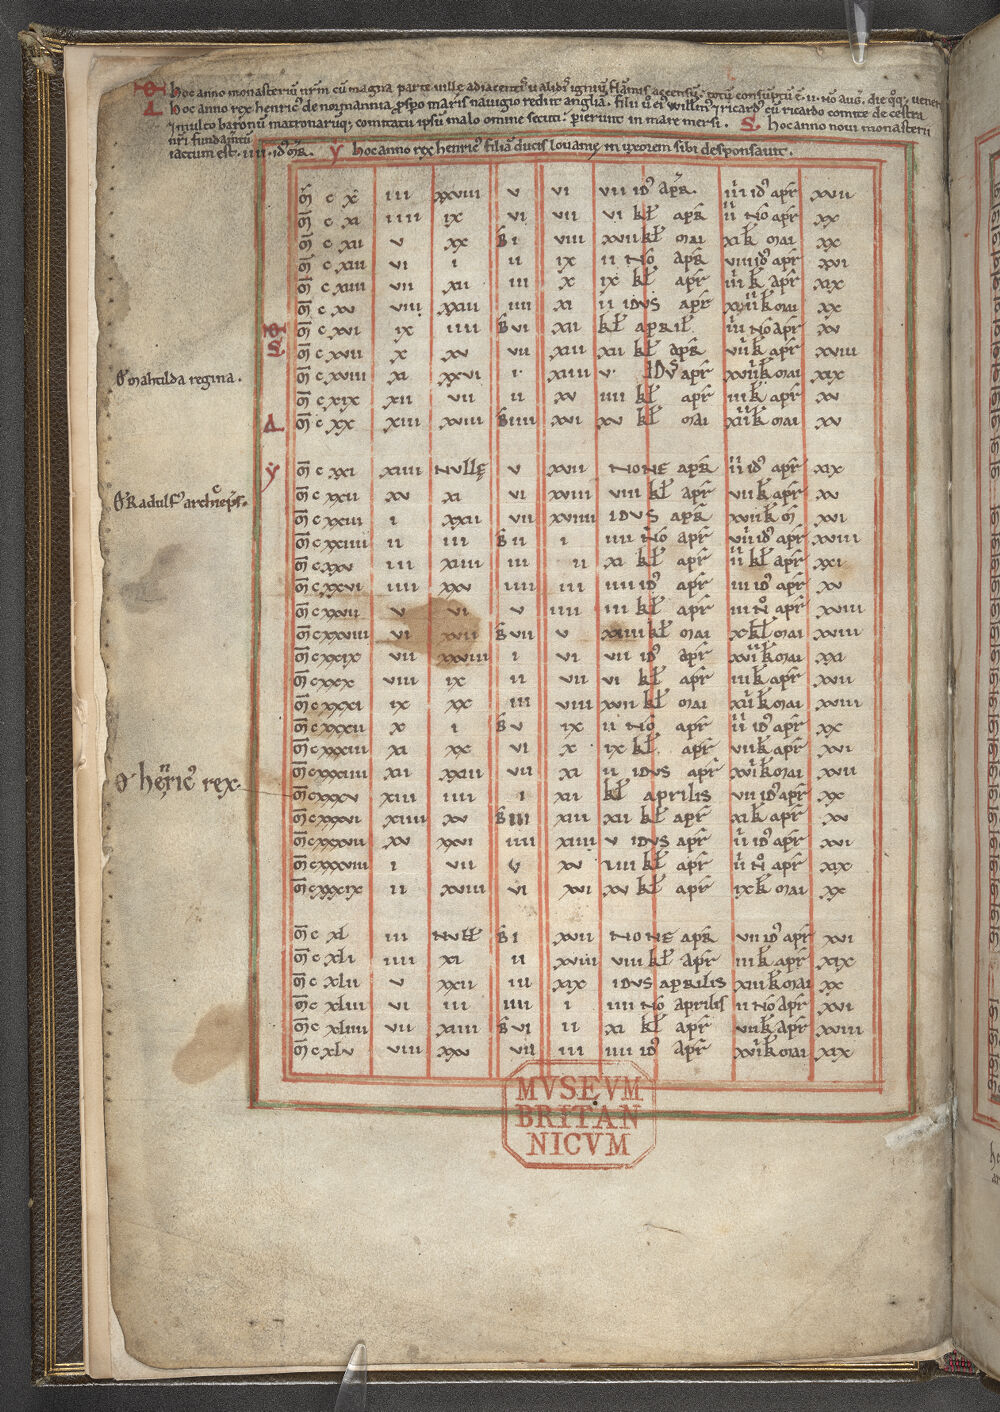 hoc anno monasteriū nr̄m cū magna parte uillę adiacentis ualidis igniū flāmis accensū totū consūptū ē. ii. no aug. die
hoc anno rex henric' de normannia ꝓspo maris nauigio redit anglia. filii u ei Willm' ⁊ ricard' cū ricardo comite de cestri
⁊ multo baronū matronarūq; comitatu ipsū malo omine secuti. perierunt in mare mersi. S hoc anno noui monasterii
nr̄i fundamtū
iactum est. iiii. id' mr. y hoc anno rex henric' filiā ducis louanię in uxorem sibi desponsauit.
m c x iii xxviii v vi vii id' apr. iii id' apr xxii
m c xi iiii ix vi vii vi kl apr ii no apr xx
m c xii v xx B i viii xvii kl mai xi k mai xx
m c xiii vi i ii ix ii no apr viii id' apr xvi
m c xiiii vii xii iii x ix kl apr iii k apr xix
m c xv viii xxiii iiii xi ii idus apr xviii k mai xx
m c xvi ix iiii B vi xii kl april iii no apr xv
S m c xvii x xv vii xiii xii kl apr viii k apr xviii
O mahtilda regina. m c xviii xi xxvi i xiiii v idus apr xviii k mai xix
m c xix xii vii ii xv iiii kl apr iii k apr xv
m c xx xiii xviii B iiii xvi xv kl mai xiii k mai xv
y m c xxi xiiii nullę v xvii none apr iii id' apr xix
O Radulf' archieps. m c xxii xv xi vi xviii viii kl apr vii k apr xv
m c xxiii i xxii vii xviiii idus apr xvii k m xvi
m c xxiiii ii iii B ii i iiii no apr viii id' apr xviii
m c xxv iii xiiii iii ii xi kl apr iii kl apr xxi
m c xxvi iiii xxv iiii iii iiii id' apr iii id' apr xv
m c xxvii v vi v iiii iii kl apr iii no apr xviii
m c xxviii vi xvii B vii v xviiii kl mai x kl mai xviii
m c xxix vii xxviii i vi vii id' apr xvii k mai xxi
m c xxx viii ix ii vii vi kl apr iii k apr xvii
m c xxxi ix xx iii viii xvii kl mai xii k mai xviii
m c xxxii x i B v ix ii no apr iii id' apr xx
m c xxxiii xi xx vi x ix kl apr vii k apr xvi
m c xxxiiii xii xxiii vii xi ii idus apr xvii k mai xvii
O henric' rex m c xxxv xiii iiii i xii kl aprilis vii id' apr xx
m c xxxvi xiiii xv B iii xiii xii kl apr xi k apr xv
m c xxxvii xv xxvi iiii xiiii v idus apr iii id' apr xvi
m c xxxviii i vii v xv iiii kl apr iii no apr xix
m c xxxix ii xviii vi xvi xv kl apr ix k mai xx
m c xl iii null B i xvii none apr vii id' apr xvi
m c xli iiii xi ii xviii viii kl apr iii k apr xix
m c xlii v xxii iii xix idus aprilis xiii k mai xx
m c xliii vi iii iiii i iiii no aprilis ii no apr xvi
m c xliiii vii xiiii B vi ii xi kl apr vii k apr xviii
m c xlv viii xxv vii iii iiii id' apr xvii k mai xix
MVSEVM
BRITAN
NICVM